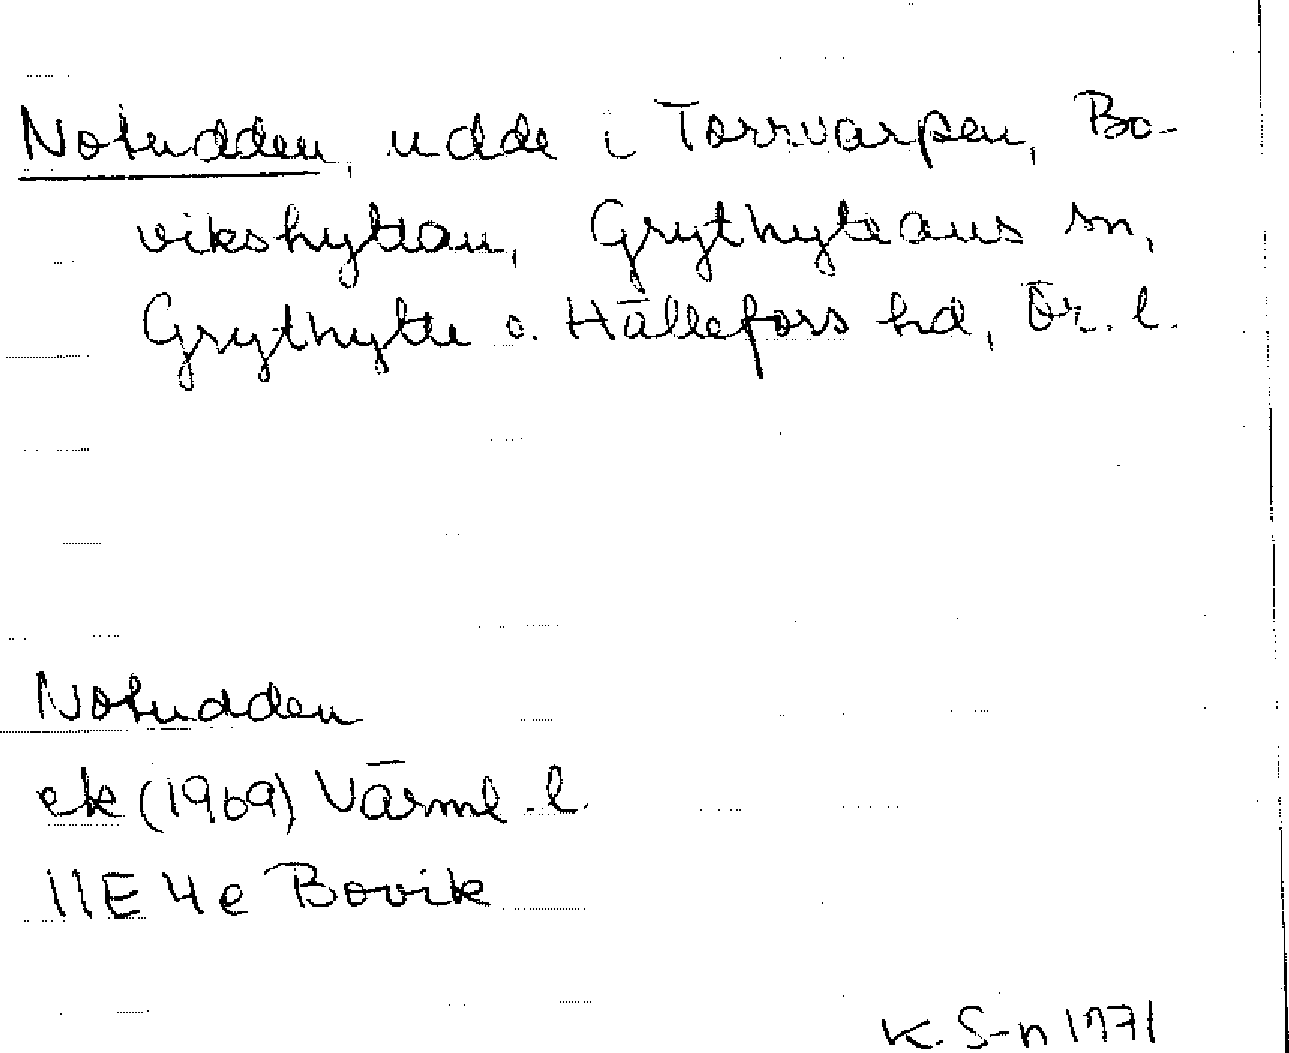 Notudden, udde i Torrvarpen, Bo-
vikshyttan, Grythytteans sn,
Grythytte o. Hällefors hd, Ör. l.
Notudden
ek (1969) Värml. l.
11E 4e Bovik
K. S-n 1971